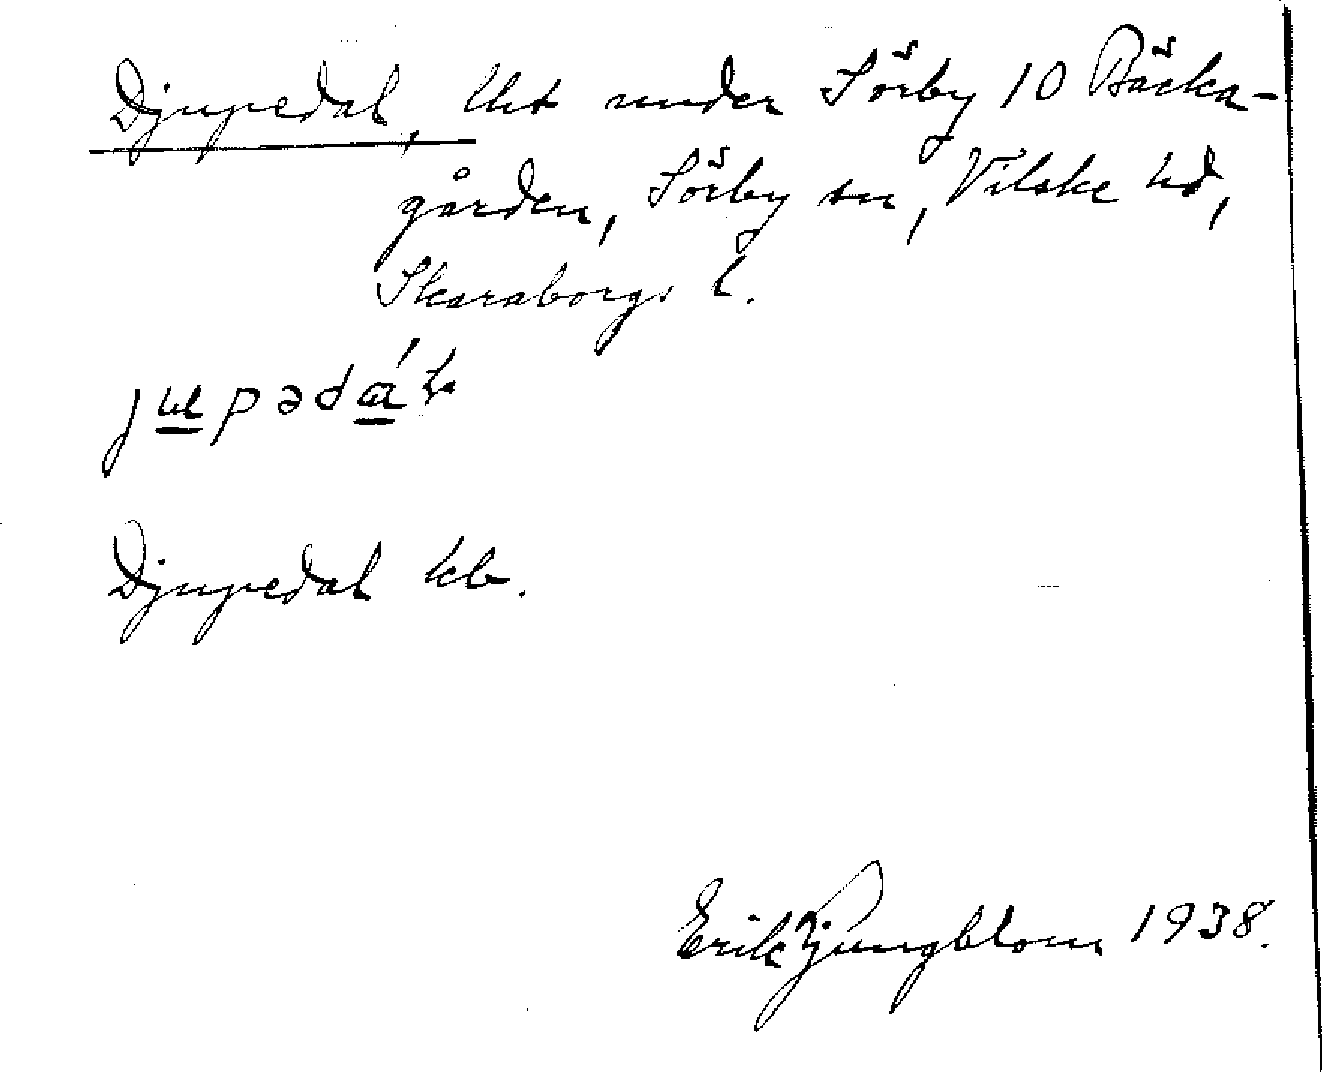 Djupedal, lht under Sörby 10 Bäcka-
gården, Sörby sn, Vilske hd,
Skaraborgs l.
Djupedal kb.
Erik Ljungblom 1938.